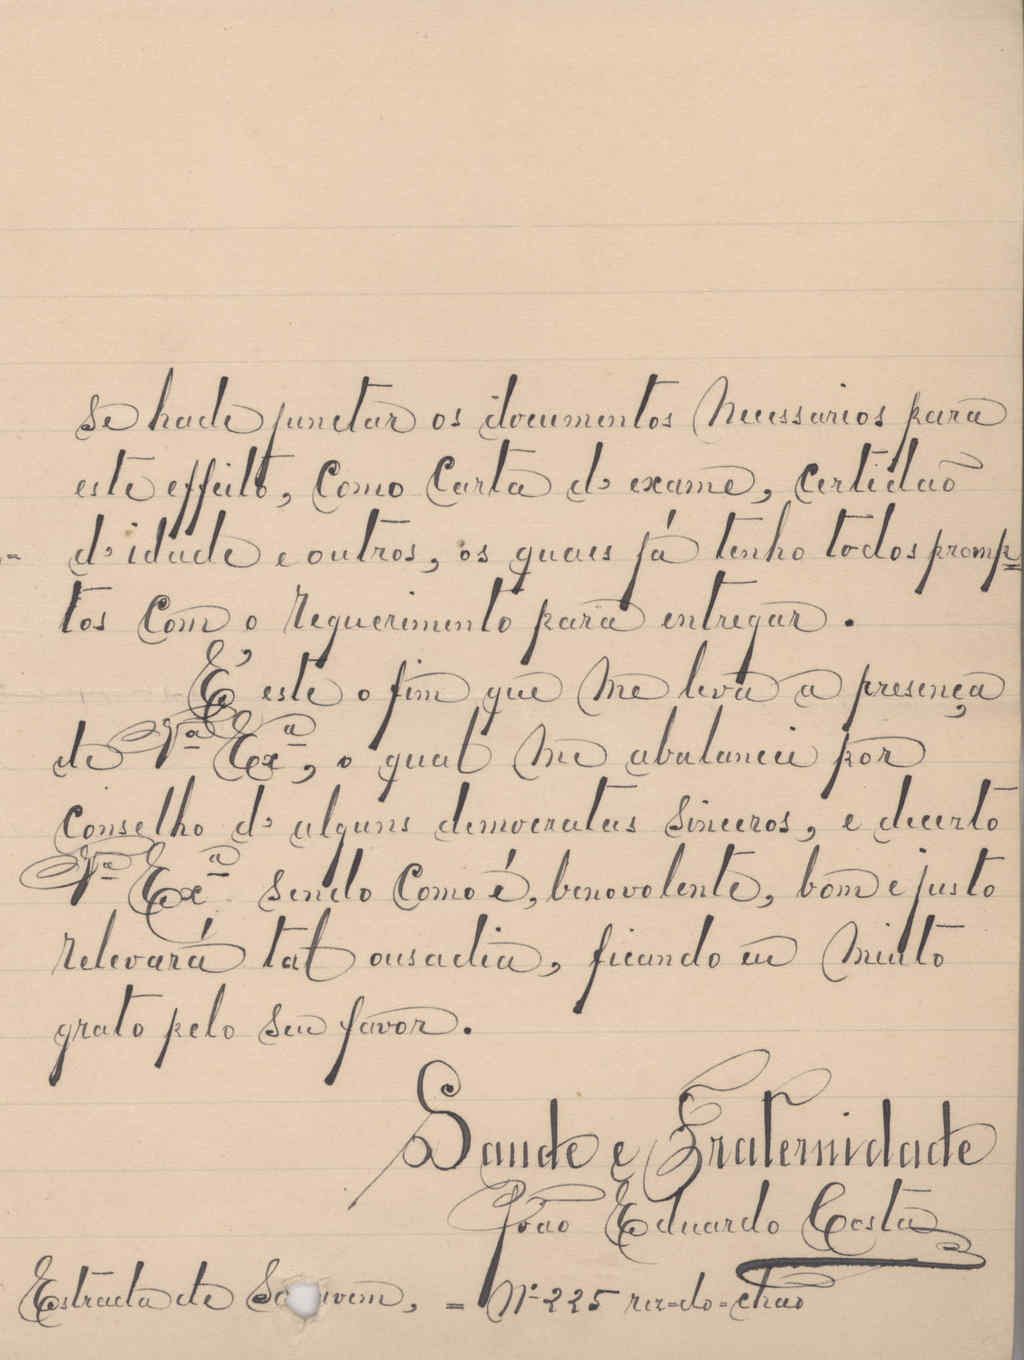 se hade junctar os documentos necessarios para
este effeito, como carta de exame, certidão
de idade e outros, os quaes já tenho todos promp=
tos com o requerimento para entregar.
É este o fim que me leva a presença
de V.ª Ex.ª, o qual me abalancei por
conselho de alguns democratas sinceros, e decerto
V.ª Ex.ª sendo como é, benovolente, bom e justo
relevará tal ousadia, ficando eu muito
grato pelo seu favor.
Saude e Fraternidade
João Eduardo Costa
Estrada de , = Nº 225 rez=do=chão